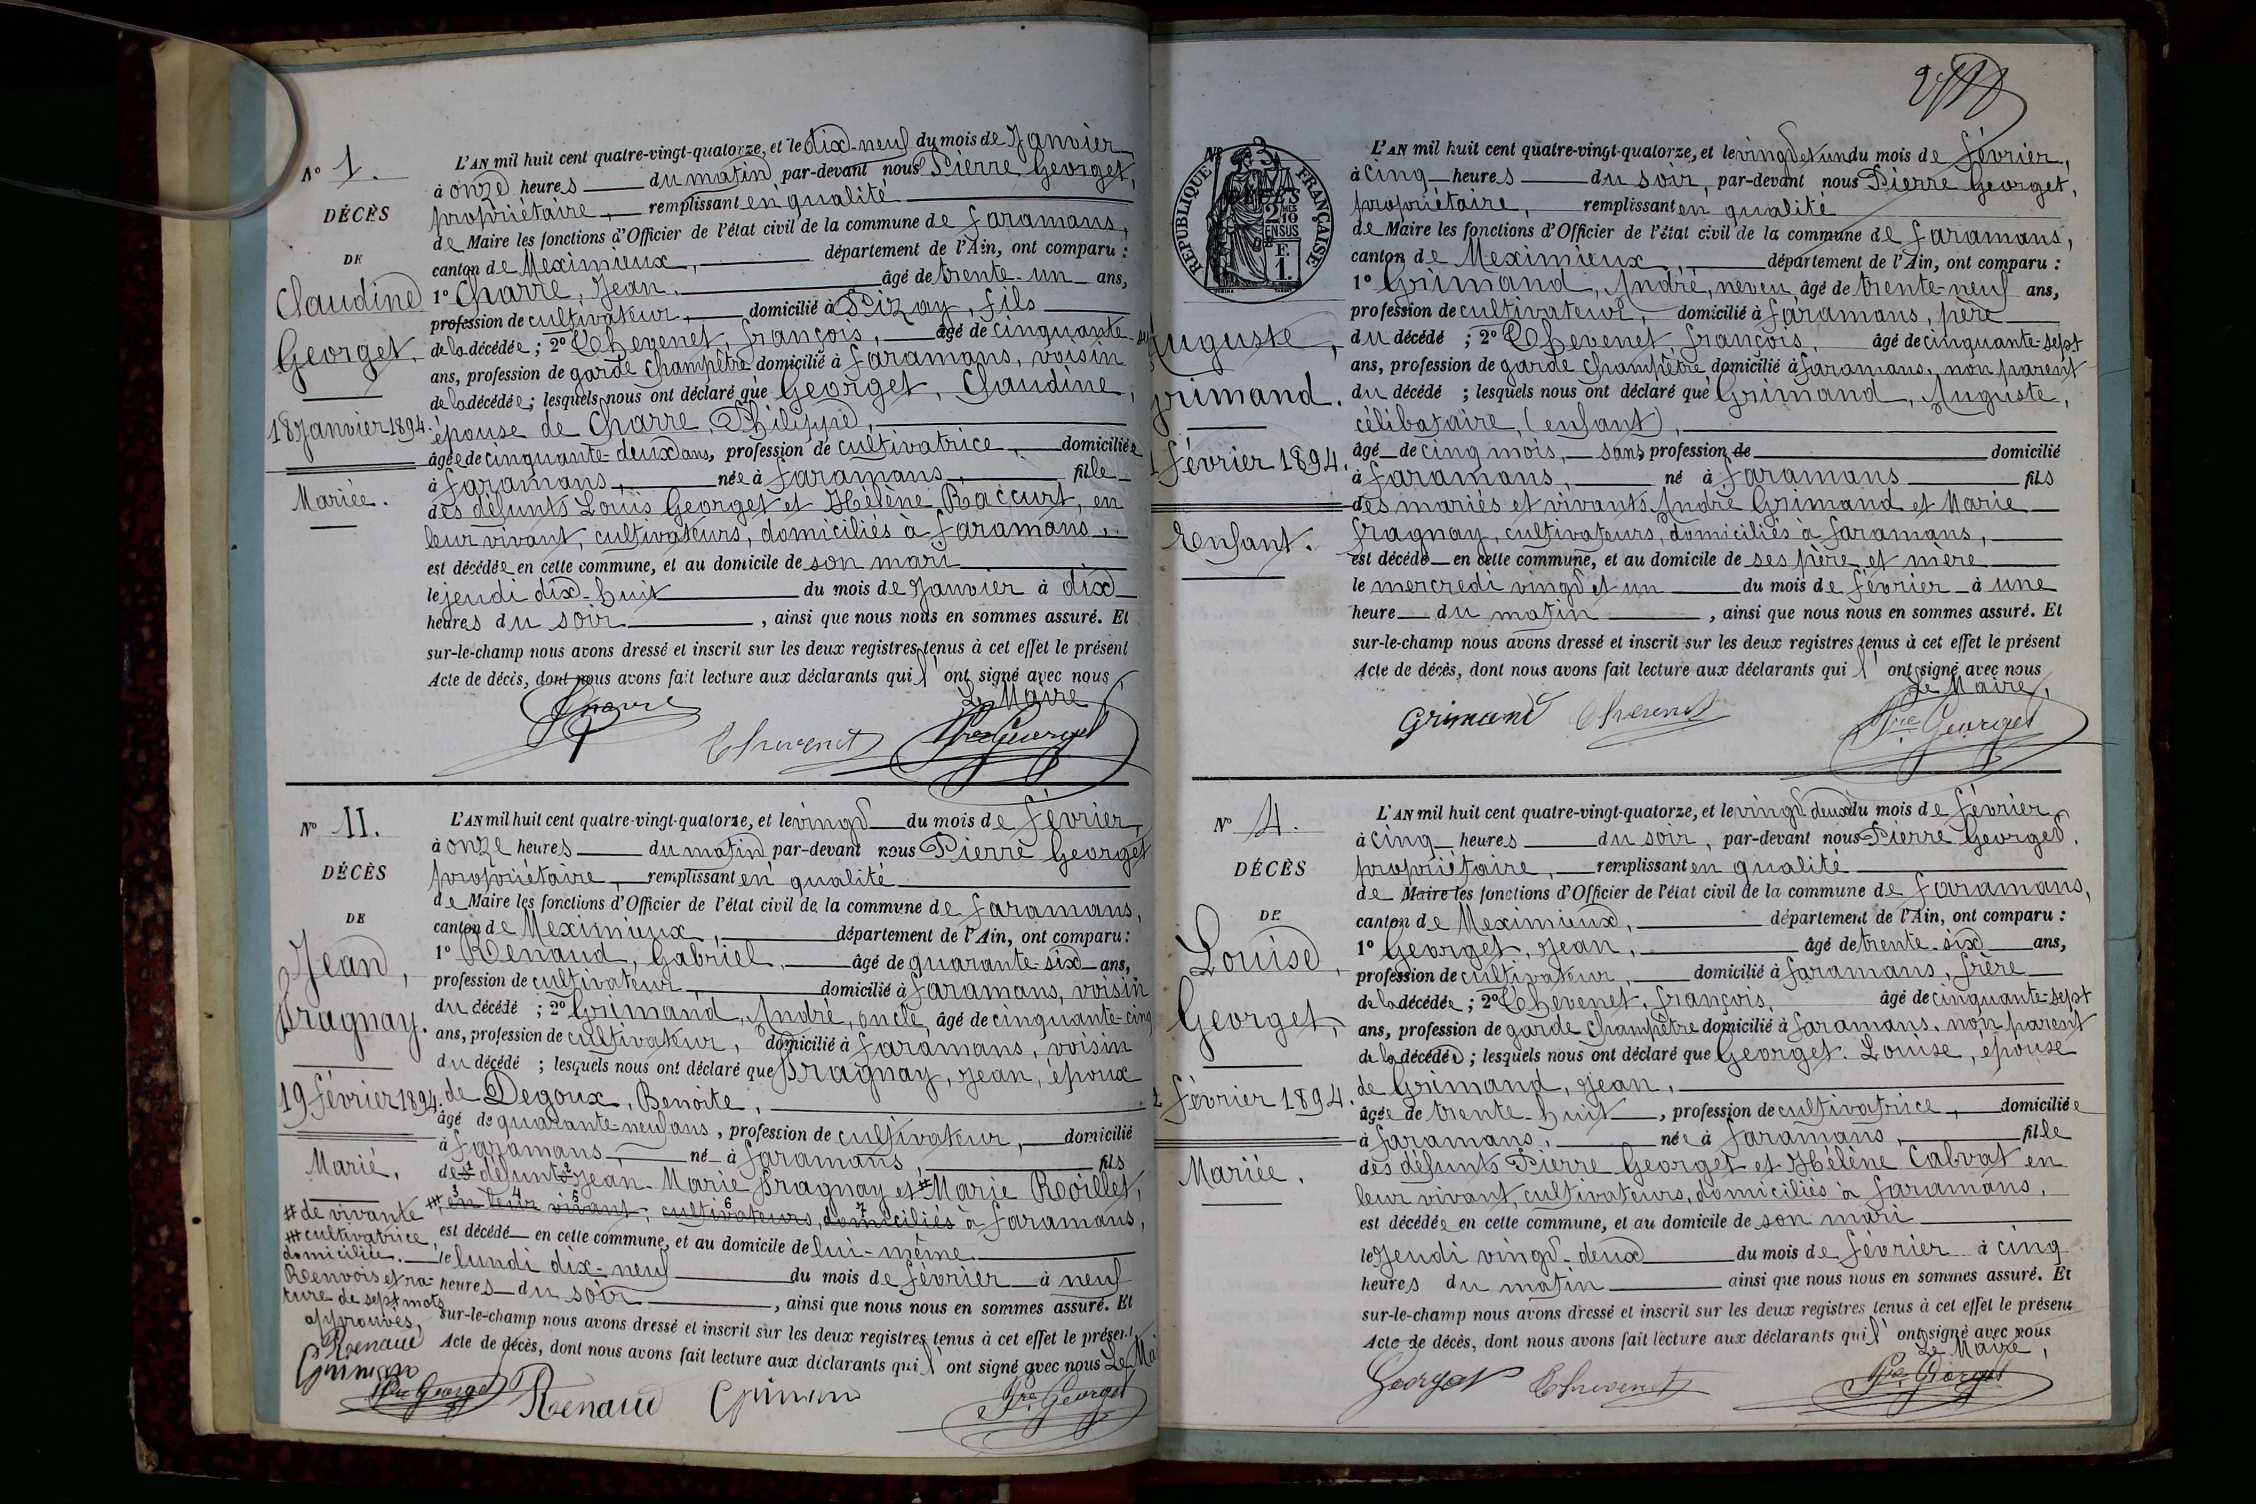 N° 1.
DÉCÈS
DE
Claudine
Georget.
18 Janvier 1894.
Mariée.
L'AN mil huit cent quatre-vingt-quatorze, et le dix-neuf du mois de Janvier
à onze heures du matin par-devant nous Pierre Georget,
propriétaire, remplissant en qualité
de Maire les fonctions d'Officier de l'état civil de la commune de Faramans,
canton de Meximieux, département de l'Ain, ont comparu :
1° Charre, Jean. âgé de trente-un ans,
profession de cultivateur, domicilié à Pizay, fils
de la décédée ; 2° Chevenet, françois, âgé de cinquante-
ans, profession de garde champêtre domicilié à Faramans, voisin
de la décédée ; lesquels nous ont déclaré que Georget, Claudine,
épouse de Charre, Philippe,
âgée de cinquante-deux ans, profession de cultivatrice, domiciliée
à Faramans, née à Faramans, fille
des défunts Louis Georget et Hélène Raccurt, en
leur vivant, cultivateurs, domiciliés à Faramans,
est décédée en cette commune, et au domicile de son mari
le jeudi dix-huit du mois de Janvier à dix
heures du soir, ainsi que nous nous en sommes assuré. Et
sur-le-champ nous avons dressé et inscrit sur les deux registres tenus à cet effet le présent
Acte de décès, dont nous avons fait lecture aux déclarants qui l'ont signé avec nous
Le Maire
Charre
Chevenet Pre Georget
N° II.
DÉCÈS
DE
Jean,
Fragnay.
19 février 1894.
Marié.
# de vivante
## cultivatrice
domiciliée.
Renvois et ra-
ture de sept mots
approuvés,
Renaud
Grimand
Pre Georget
L'AN mil huit cent quatre-vingt-quatorze, et le vingt du mois de février,
à onze heures du matin par-devant nous Pierre Georget
propriétaire, remplissant en qualité
de Maire les fonctions d'Officier de l'état civil de la commune de Faramans,
canton de Meximieux, département de l'Ain, ont comparu :
1° Renaud, Gabriel, âgé de quarante-six ans,
profession de cultivateur, domicilié à Faramans, voisin
du décédé ; 2° Grimand, André, oncle, âgé de cinquante-cinq
ans, profession de cultivateur, domicilié à Faramans, voisin
du décédé ; lesquels nous ont déclaré que Fragnay, Jean, époux
de Degoux, Benoite,
âgé de quarante-neuf ans, profession de cultivateur, domicilié
à Faramans, né à Faramans, fils
des défunts Jean-Marie Fragnay et # Marie Roillet,
## en leur vivant, cultivateurs, domiciliés à Faramans,
est décédé en cette commune, et au domicile de lui-même.
le lundi dix-neuf du mois de février à neuf
heures du soir, ainsi que nous nous en sommes assuré. Et
sur-le-champ nous avons dressé et inscrit sur les deux registres tenus à cet effet le présent
Acte de décès, dont nous avons fait lecture aux déclarants qui l'ont signé avec nous Le Ma
Renaud Grimand Pre Georget
RÉPUBLIQUE FRANÇAISE
2 10
EN SUS
F.
1.
Auguste,
Grimand.
février 1894.
Enfant.
L'AN mil huit cent quatre-vingt-quatorze, et le vingt et un du mois de février,
à cinq heures du soir, par-devant nous Pierre Georget,
propriétaire, remplissant en qualité
de Maire les fonctions d'Officier de l'état civil de la commune de Faramans,
canton de Meximieux, département de l'Ain, ont comparu :
1° Grimand, André, neveu, âgé de trente-neuf ans,
profession de cultivateur, domicilié à Faramans, père
du décédé ; 2° Chevenet, françois, âgé de cinquante-sept
ans, profession de garde champêtre domicilié à Faramans, non parent
du décédé ; lesquels nous ont déclaré que Grimand, Auguste,
célibataire, (enfant),
âgé de cinq mois, sans profession de domicilié
à Faramans, né à Faramans fils
des mariés et vivants André Grimand et Marie
Fragnay, cultivateurs, domiciliés à Faramans,
est décédé en cette commune, et au domicile de ses père et mère
le mercredi vingt et un du mois de février à une
heure du matin, ainsi que nous nous en sommes assuré. Et
sur-le-champ nous avons dressé et inscrit sur les deux registres tenus à cet effet le présent
Acte de décès, dont nous avons fait lecture aux déclarants qui l'ont signé avec nous
Le Maire,
Grimand Chevenet Pre Georget
N° 4.
DÉCÈS
DE
Louise,
Georget,
février 1894.
Mariée.
L'AN mil huit cent quatre-vingt-quatorze, et le vingt deux du mois de février
à cinq heures du soir, par-devant nous Pierre Georget,
propriétaire, remplissant en qualité
de Maire les fonctions d'Officier de l'état civil de la commune de Faramans,
canton de Meximieux, département de l'Ain, ont comparu :
1° Georget, Jean, âgé de trente-six ans,
profession de cultivateur, domicilié à Faramans, frère
de la décédée ; 2° Chevenet, françois, âgé de cinquante-sept
ans, profession de garde champêtre domicilié à Faramans, non parent
de la décédée ; lesquels nous ont déclaré que Georget, Louise, épouse
de Grimand, Jean,
âgée de trente-huit, profession de cultivatrice, domiciliée
à Faramans, née à Faramans, fille
des défunts Pierre Georget et Hélène Calvat en
leur vivant, cultivateurs, domiciliés à Faramans,
est décédée en cette commune, et au domicile de son mari
le Jeudi vingt-deux du mois de février à cinq
heures du matin ainsi que nous nous en sommes assuré. Et
sur-le-champ nous avons dressé et inscrit sur les deux registres tenus à cet effet le présent
Acte de décès, dont nous avons fait lecture aux déclarants qui l'ont signé avec nous
Le Maire,
Georget Chevenet Pre Georget